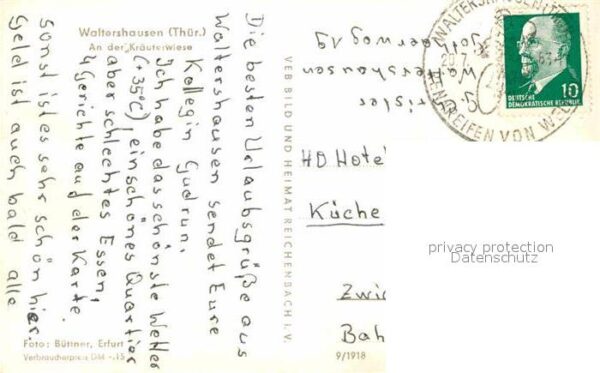 Waltershausen (Thür.)
An der Kräuterwiese
Die besten Urlaubsgrüße aus
Waltershausen sendet Eure
Kollegin Gudrun.
Ich habe das schönste Wetter
(+35°C), ein schönes Quartier
aber schlechtes Essen,
4 Gerichte auf der Karte
sonst ist es sehr schön hier.
Geld ist auch bald alle
Foto: Büttner, Erfurt
Verbraucherpreis DM -.15
VEB BILD UND HEIMAT REICHENBACH I. V.
9/1918
Waltershausen
HO Hotel
Küche
Zwic
Bah
20.7.
REIFEN VON
10
DEUTSCHE
DEMOKRATISCHE REPUBLIK
privacy protection
Datenschutz